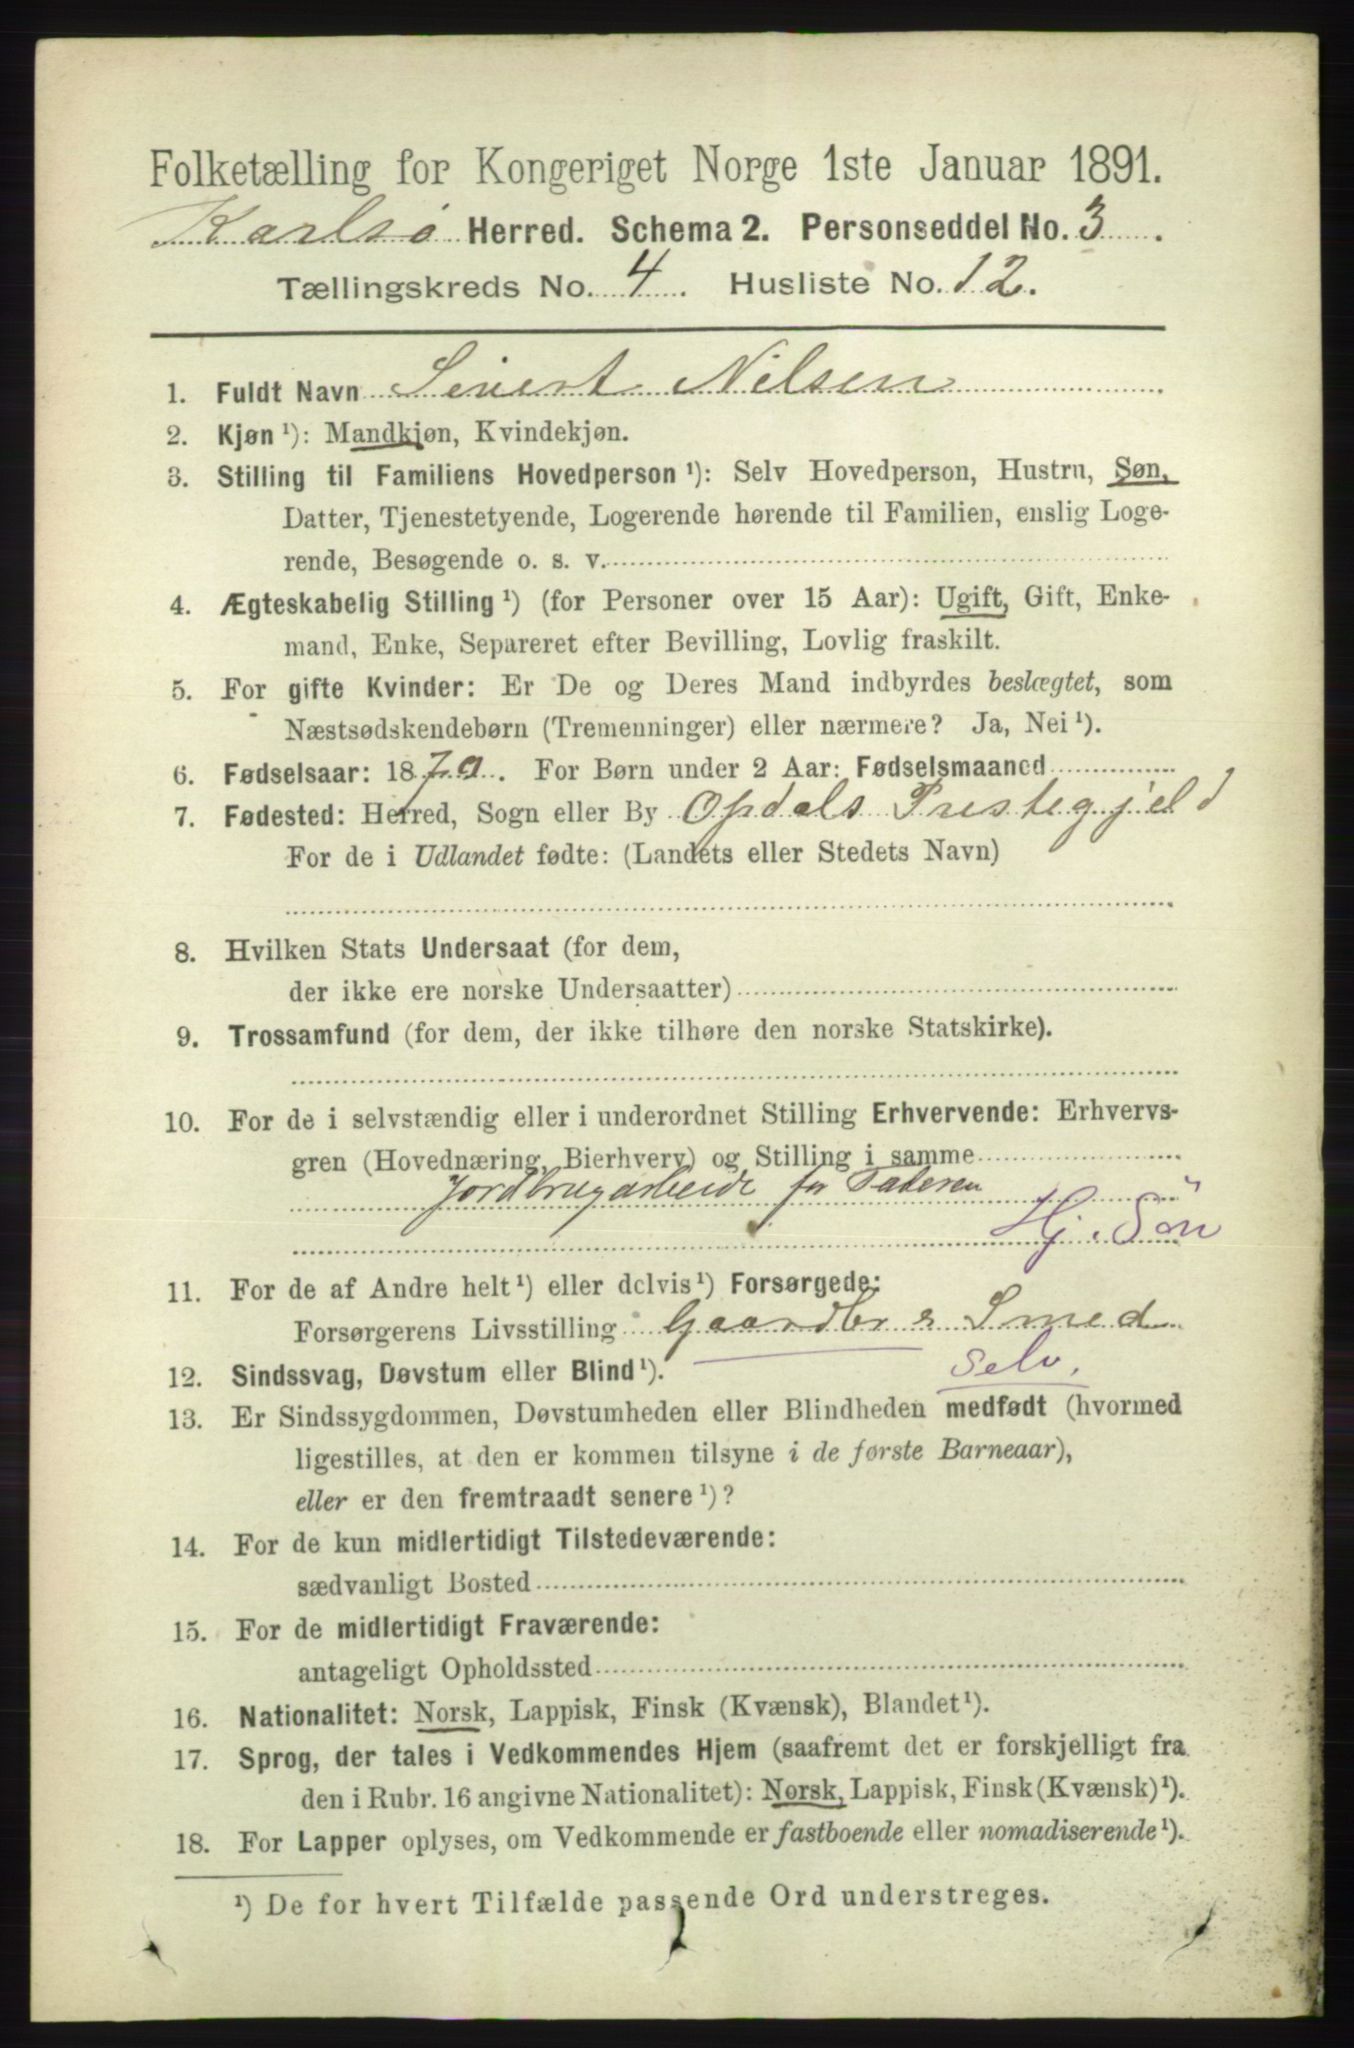 Folketælling for Kongeriget Norge 1ste Januar 1891.
Karlsø Herred. Schema 2. Personseddel No. 3.
Tællingskreds No. 4. Husliste No. 12.
1. Fuldt Navn Sivert Nilsen
2. Kjøn ¹): Mandkjøn, Kvindekjøn.
3. Stilling til Familiens Hovedperson ¹): Selv Hovedperson, Hustru, Søn,
Datter, Tjenestetyende, Logerende hørende til Familien, enslig Loge-
rende, Besøgende o. s. v.
4. Ægteskabelig Stilling ¹) (for Personer over 15 Aar): Ugift, Gift, Enke-
mand, Enke, Separeret efter Bevilling, Lovlig fraskilt.
5. For gifte Kvinder: Er De og Deres Mand indbyrdes beslægtet, som
Næstsødskendebørn (Tremenninger) eller nærmere? Ja, Nei ¹).
6. Fødselsaar: 1870. For Børn under 2 Aar: Fødselsmaaned
7. Fødested: Herred, Sogn eller By Opdals Prestegjeld
For de i Udlandet fødte: (Landets eller Stedets Navn)
8. Hvilken Stats Undersaat (for dem,
der ikke ere norske Undersaatter)
9. Trossamfund (for dem, der ikke tilhøre den norske Statskirke).
10. For de i selvstændig eller i underordnet Stilling Erhvervende: Erhvervs-
gren (Hovednæring, Bierhverv) og Stilling i samme
Jordbrugarbeide for Faderen
Hj. Søn
11. For de af Andre helt ¹) eller delvis ¹) Forsørgede:
Forsørgerens Livsstilling Gaardbr & Smed
Selv.
12. Sindssvag, Døvstum eller Blind ¹).
13. Er Sindssygdommen, Døvstumheden eller Blindheden medfødt (hvormed
ligestilles, at den er kommen tilsyne i de første Barneaar),
eller er den fremtraadt senere ¹)?
14. For de kun midlertidigt Tilstedeværende:
sædvanligt Bosted
15. For de midlertidigt Fraværende:
antageligt Opholdssted
16. Nationalitet: Norsk, Lappisk, Finsk (Kvænsk), Blandet ¹).
17. Sprog, der tales i Vedkommendes Hjem (saafremt det er forskjelligt fra
den i Rubr. 16 angivne Nationalitet): Norsk, Lappisk, Finsk (Kvænsk) ¹).
18. For Lapper oplyses, om Vedkommende er fastboende eller nomadiserende ¹).
¹) De for hvert Tilfælde passende Ord understreges.